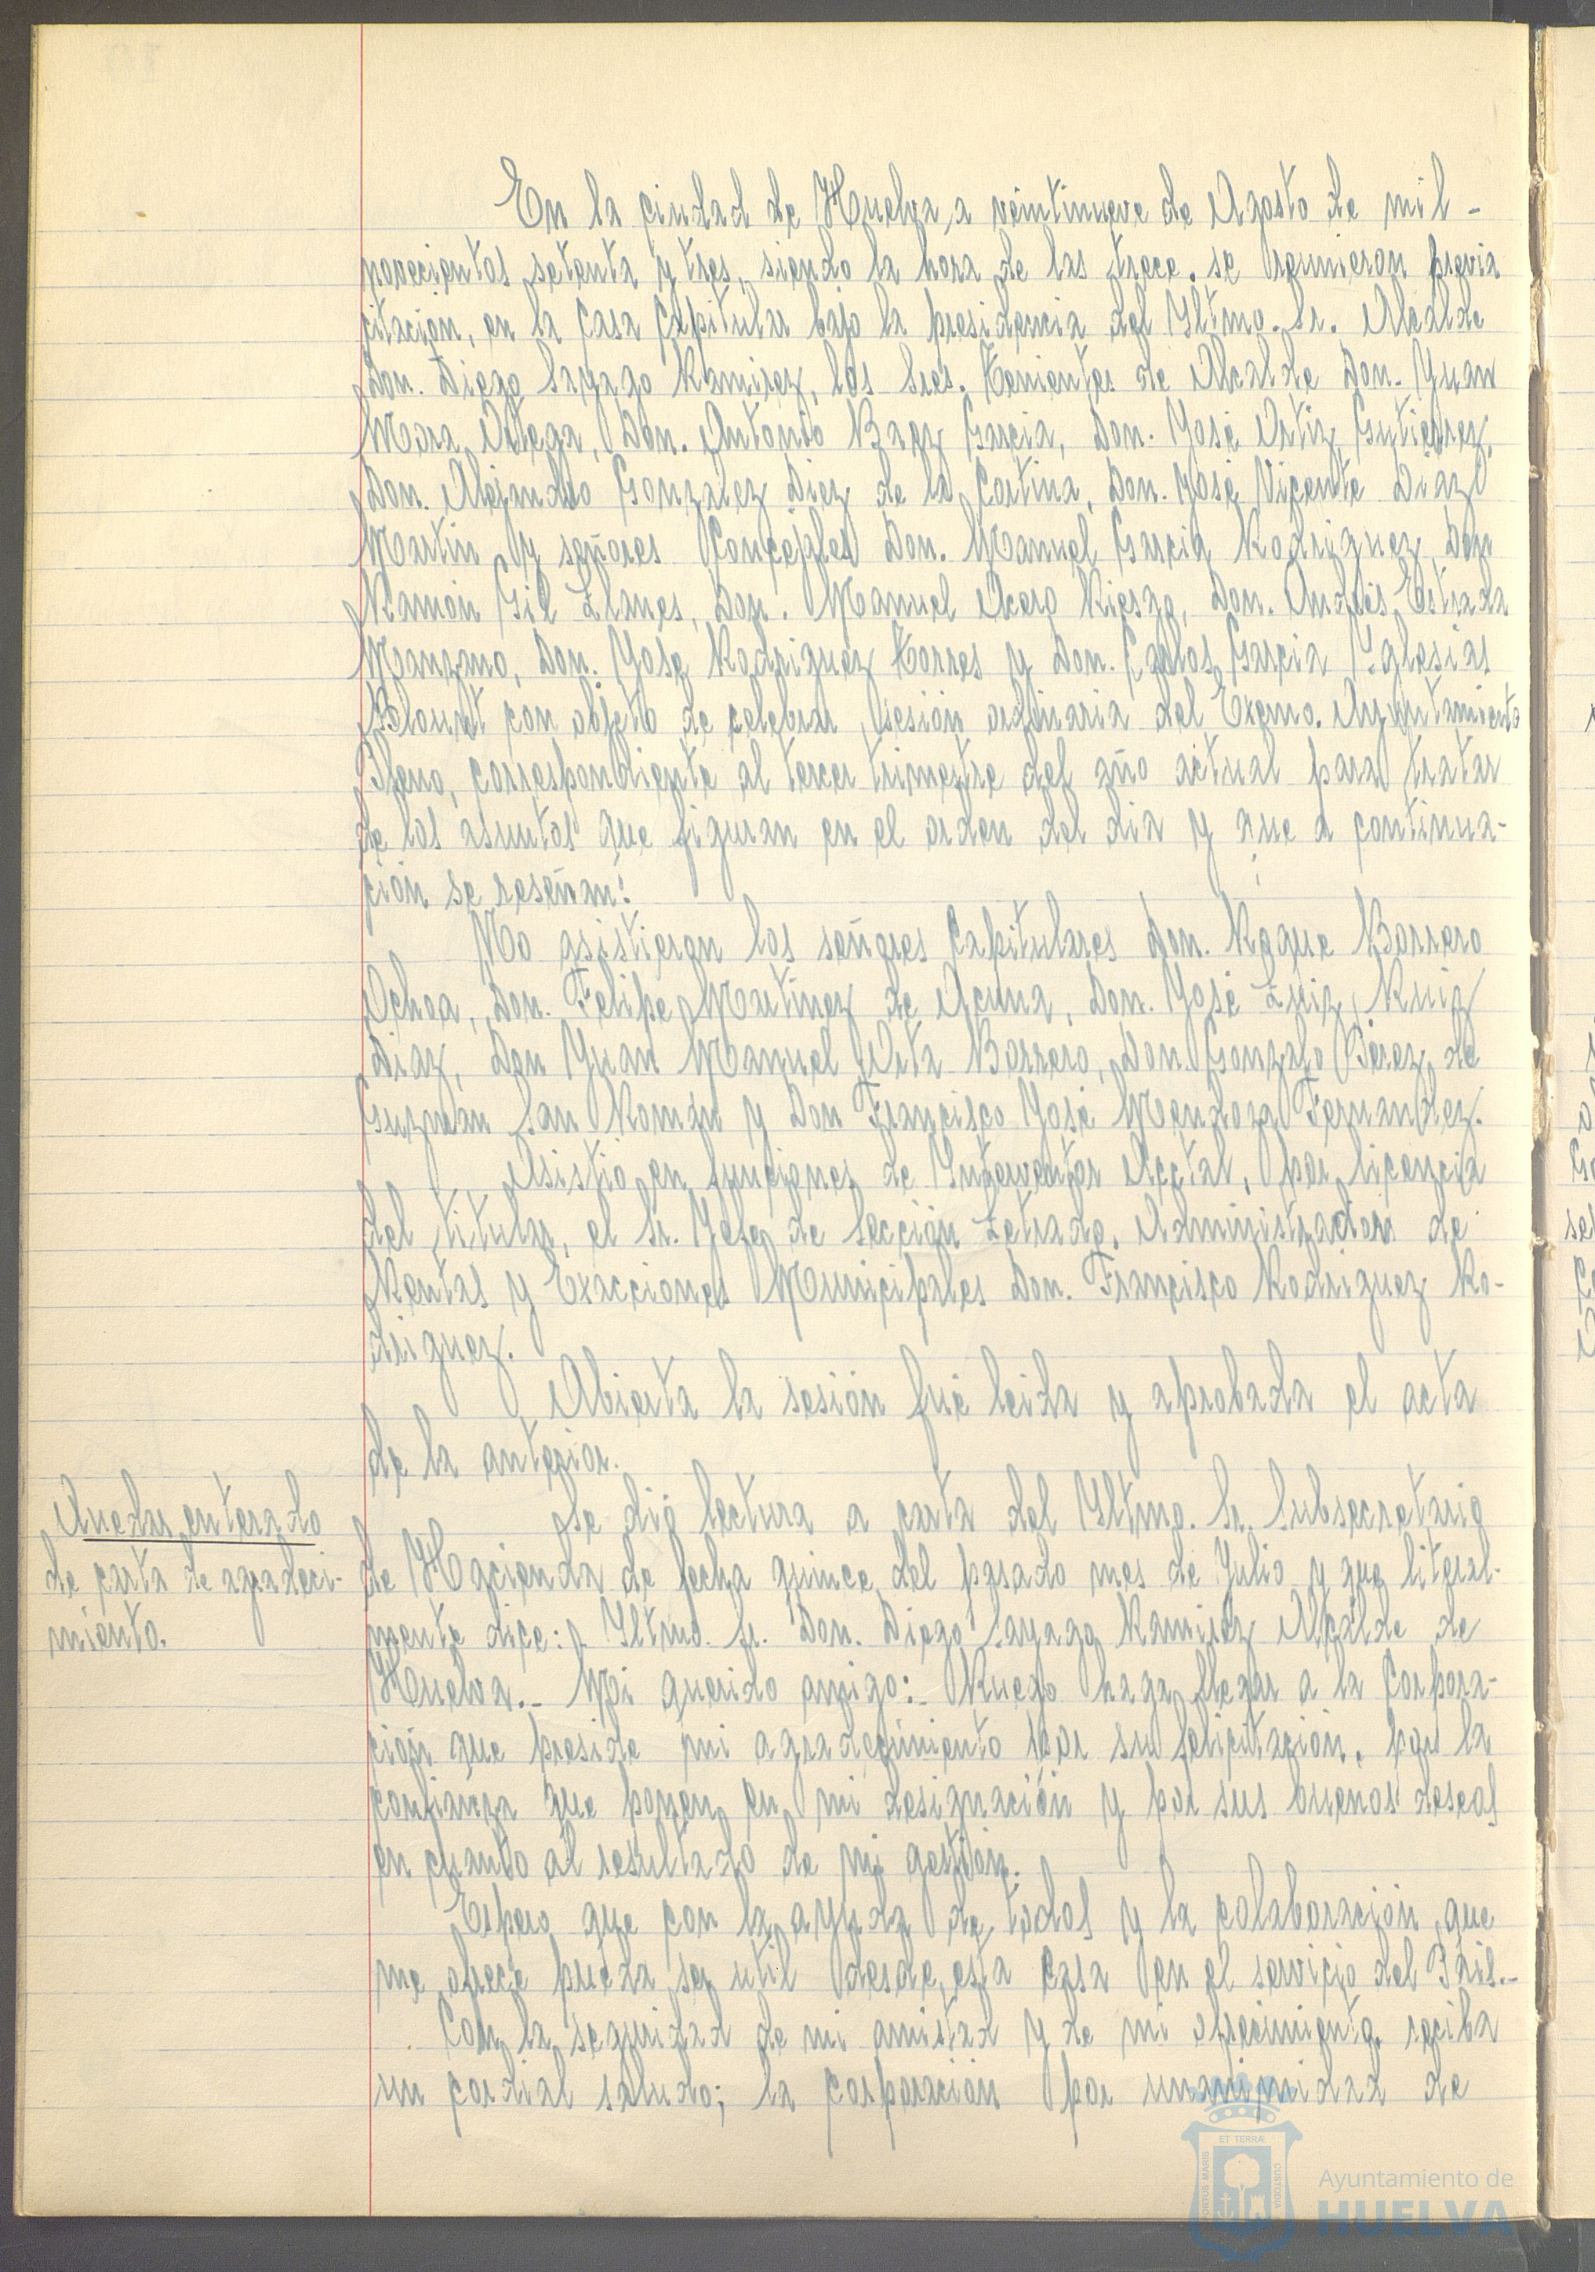 En la ciudad de Huelva, a veintinueve de Agosto de mil-
novecientos setenta y tres, siendo la hora de las trece, se reunieron previa
citación, en la Casa Capitular bajo la presidencia del Yltmo. Sr. Alcalde
Don. Diego Sayago Ramirez, los Sres. Tenientes de Alcalde Don. Juan
Mora Ortega, Don. Antonio Baez Garcia, Don. José Ortiz Gutierrez,
Don. Alejandro Gonzalez Diez de la Cortina, Don. José Vicente Diaz
Martin y señores Concejales Don. Manuel Garcia Rodriguez, Don
Ramón Gil Llanes, Don. Manuel Acero Riesgo, Don. Andrés Estrada
Manzano, Don. José Rodriguez Torres y Don. Carlos Garcia Yglesias
Blount con objeto de celebrar sesión ordinaria del Excmo. Ayuntamiento
Pleno, correspondiente al tercer trimestre del año actual para tratar
de los asuntos que figuran en el orden del dia y que a continua-
ción se reseñan:
No asistieron los señores Capitulares Don. Roque Barrero
Ochoa, Don. Felipe Martinez de Acuna, Don. José Luiz Ruiz
Diaz, Don Juan Manuel Orta Borrero, Don. Gonzalo Pérez de
Guzman San Román y Don Francisco José Mendoza Fernandez.
Asistio en funciones de Ynterventor Acctal, por licencia
del titular, el Sr. Jefe de Sección Letrado, Administracion de
Rentas y Exacciones Municipales Don. Francisco Rodriguez Ro-
driguez.
Abierta la sesión fué leida y aprobada el acta
de la anterior.
Quedar enterado
de carta de agradeci-
miento.
Se dió lectura a carta del Yltmo. Sr. Subsecretario
de Hacienda de fecha quince del pasado mes de Julio y que literal-
mente dice: Yltmo. Sr. Don. Diego Sayago Ramirez Alcalde de
Huelva.- Mi querido amigo:- Ruego haga llegar a la Corpora-
ción que preside mi agradecimiento por su felicitación, por la
confianza que ponen en mi designación y por sus buenos deseos
en cuanto al resultado de mi gestión.
Espero que con la ayuda de todos y la colaboración que
me ofrece pueda ser util desde esta casa en el servicio del País.-
Con la seguridad de mi amistad y de mi ofrecimiento, reciba
un cordial saludo; la corporación por unanimidad de
PORTUS MARIS
ET TERRÆ
CUSTODIA
Ayuntamiento de
HUELVA